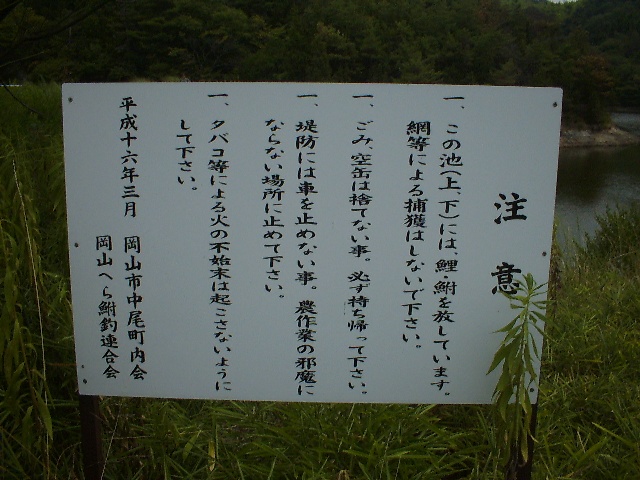 注意
一、この池(上、下)には、鯉・鮒を放しています。
網等による捕獲はしないで下さい。
一、ごみ、空缶は捨てない事。必ず持ち帰って下さい。
一、堤防には車を止めない事。農作業の邪魔に
ならない場所に止めて下さい。
一、タバコ等による火の不始末は起こさないように
して下さい。
平成十六年三月 岡山市中尾町内会
岡山へら鮒釣連合会